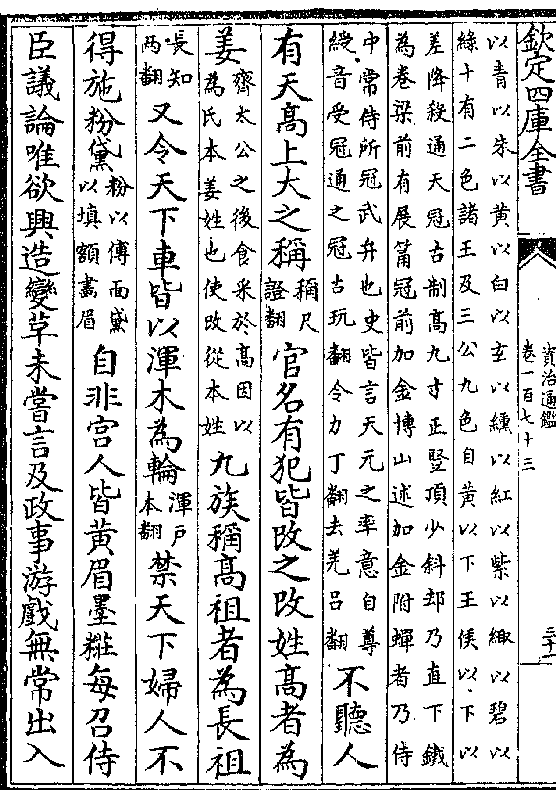 欽定四庫全書
資治通鑑
卷一百七十三
三十二
以青以朱以黄以白以玄以纁以紅以紫以緅以碧以
綠十有二色諸王及三公九色自黄以下王侯以下以
差降殺通天冠古制高九寸正竪頂少斜郤乃直下鐵
為卷梁前有展筩冠前加金博山述加金附蟬者乃侍
中常侍所冠武弁也史皆言天元之率意自尊
綬音受冠通之冠古玩翻令力丁翻去羌吕翻
不聽人
有天髙上大之稱
稱尺
證翻
官名有犯皆改之改姓髙者為
姜
齊太公之後食采於高因以
為氏本姜姓也使改從本姓
九族稱髙祖者為長祖
長知
两翻
又令天下車皆以渾木為輪
渾戸
本翻
禁天下婦人不
得施粉黛
粉以傅面黛
以填額畫眉
自非宫人皆黄眉墨糚每召侍
臣議論唯欲興造變草未嘗言及政事游戲無常出入